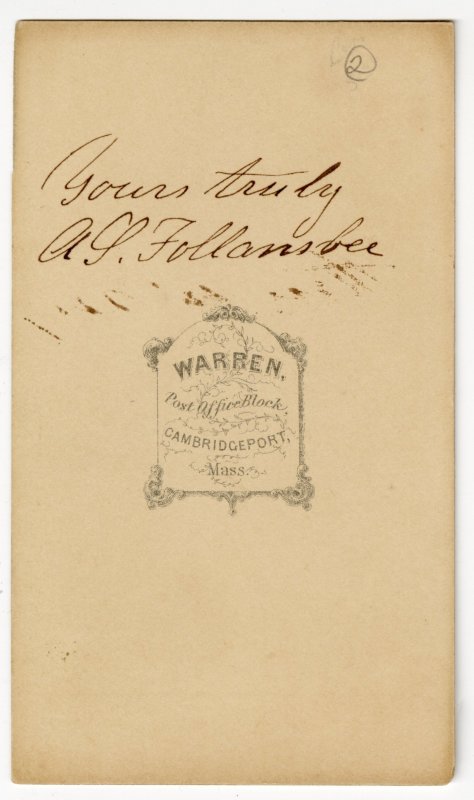 2
Yours truly
A S. Follansbee
WARREN,
Post Office Block,
CAMBRIDGEPORT,
Mass.